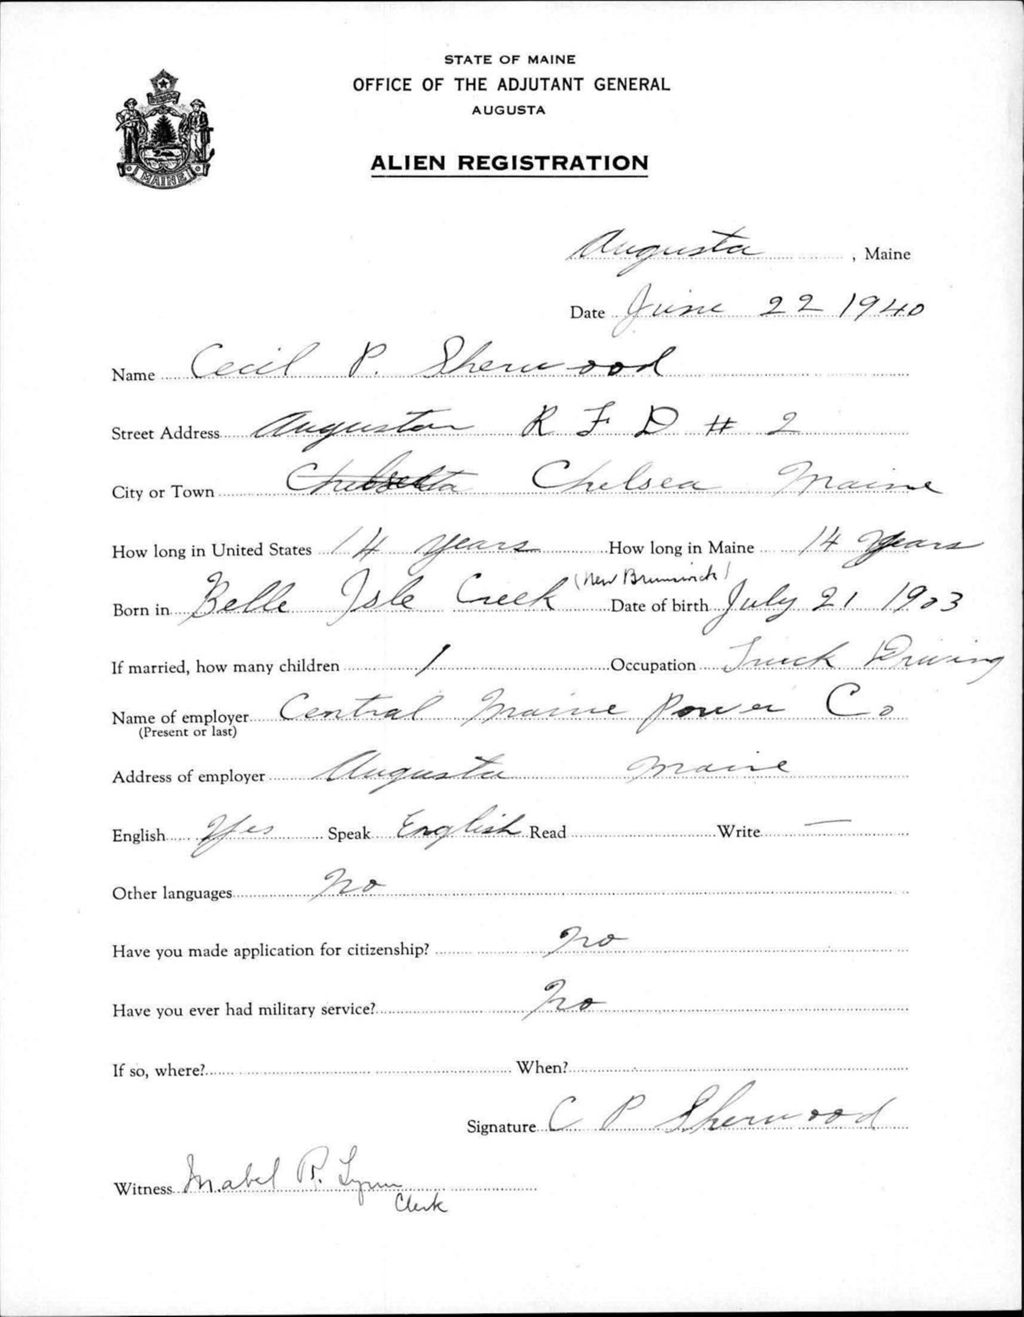 STATE OF MAINE
OFFICE OF THE ADJUTANT GENERAL
AUGUSTA
ALIEN REGISTRATION
MAINE
Augusta, Maine
Date June 22 1940
Name Cecil P. Sherwood
Street Address Augusta R F D # 2
City or Town Chelsea Maine
How long in United States 14 years How long in Maine 14 years
Born in Belle Isle Creek (New Brunswick) Date of birth July 21 1903
If married, how many children 1 Occupation Truck Driving
Name of employer Central Maine Power Co
(Present or last)
Address of employer Augusta Maine
English Yes Speak English Read Write —
Other languages No
Have you made application for citizenship? No
Have you ever had military service? No
If so, where? When?
Signature C P Sherwood
Witness Mabel R. Lynn
Clerk